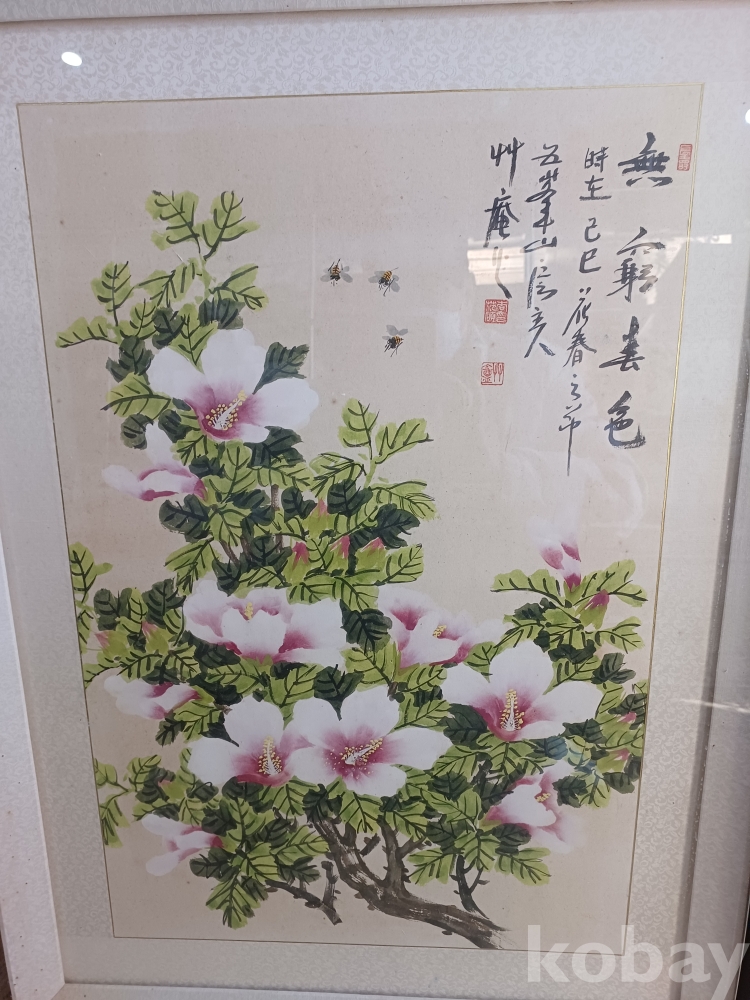 無窮春色
時在己巳花春之節
五峯山房主人
艸庵
kobay